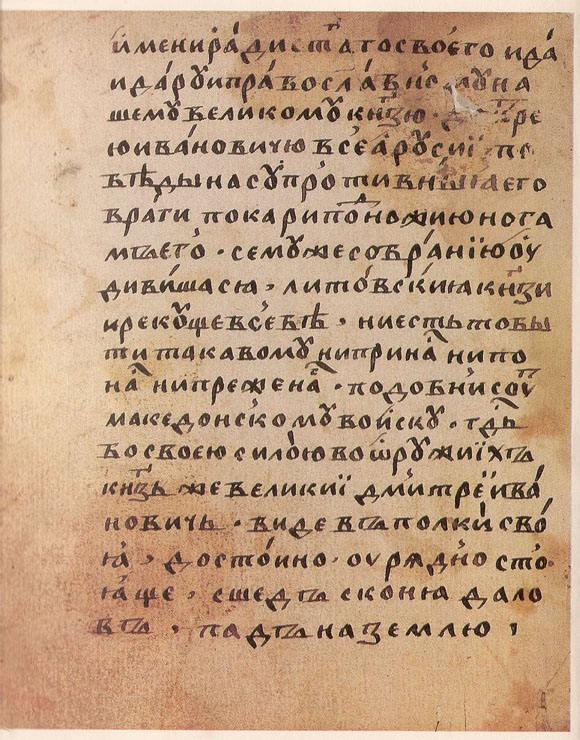 и҆мениради ст҃аго своего и да
и даруи православн
шемꙋ великомꙋ кнѧзю ре
ю ивановичю всеа рꙋсиї по
бѣды на сꙋпротивныꙗ его
враги покари пꙍ ножию нога
мъ его · семꙋже собраниїю оу
дивишасꙗ · литовскиꙗ кнѧзи
и рекꙋще в себѣ · ниесть то бы
ти такавомꙋ ни при на ни по
на ни преже на · подобни сꙋт
македонскомꙋ войскꙋ · гдь
бо своею силою воѡрꙋжиїхъ
кнѧзь же великиї дмитреї ива
новичь · видевъ полки сво
ꙗ · достоино · оурядно сто
ꙗще · сшедъ с коня дало
въ · падъ на землю ·